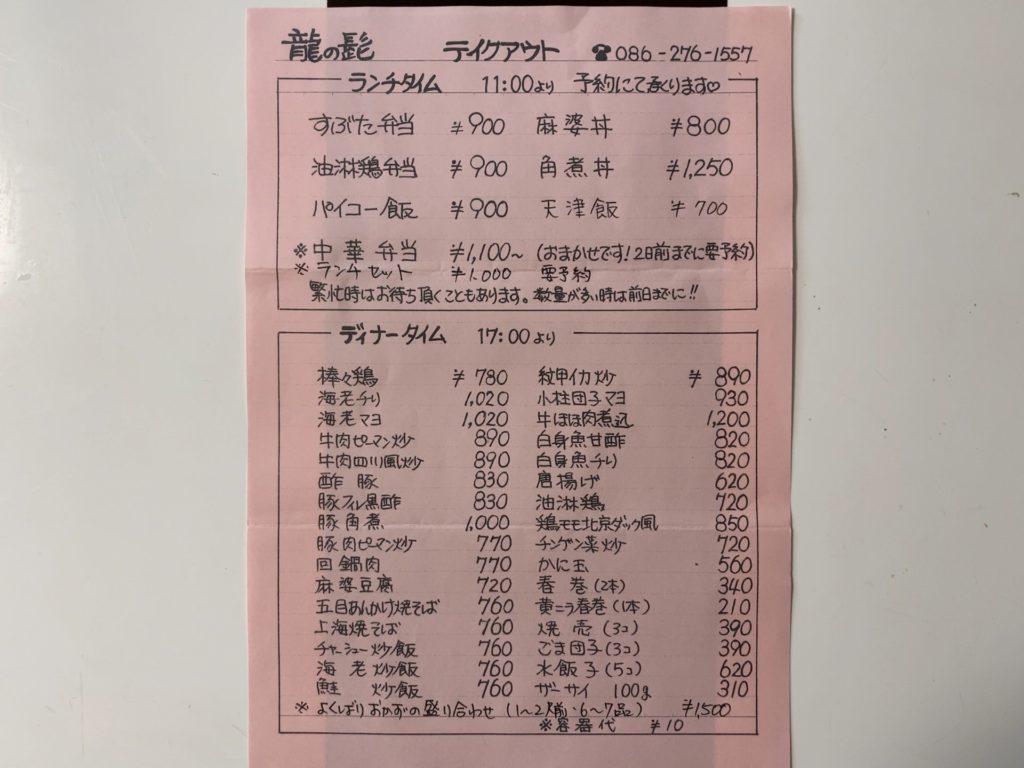 龍の髭 テイクアウト ☎086-276-1557
ランチタイム 11:00より 予約にて承ります♡
すぶた弁当 ¥900 麻婆丼 ¥800
油淋鶏弁当 ¥900 角煮丼 ¥1,250
パイコー飯 ¥900 天津飯 ¥700
※中華弁当 ¥1,100~ (おまかせです!2日前までに要予約)
※ランチセット ¥1.000 要予約
繁忙時はお待ち頂くこともあります。数量が多い時は前日までに!!
ディナータイム 17:00より
棒々鶏 ¥780 紋甲イカ炒 ¥890
海老チリ 1,020 小柱団子マヨ 930
海老マヨ 1,020 牛ほほ肉煮込 1,200
牛肉ピーマン炒 890 白身魚甘酢 820
牛肉四川風炒 890 白身魚チリ 820
酢豚 830 唐揚げ 620
豚フィレ黒酢 830 油淋鶏 720
豚角煮 1,000 鶏モモ北京ダック風 850
豚肉ピーマン炒 770 チンゲン菜炒 720
回鍋肉 770 かに玉 560
麻婆豆腐 720 春巻(2本) 340
五目あんかけ焼そば 760 黄ニラ春巻(1本) 210
上海焼そば 760 焼売(3コ) 390
チャーシュー炒飯 760 ごま団子(3コ) 390
海老炒飯 760 水飯子(5コ) 620
鮭炒飯 760 ザーサイ 100g 310
※よくばりおかずの盛り合わせ(1~2人前・6~7品) ¥1,500
※容器代 ¥10